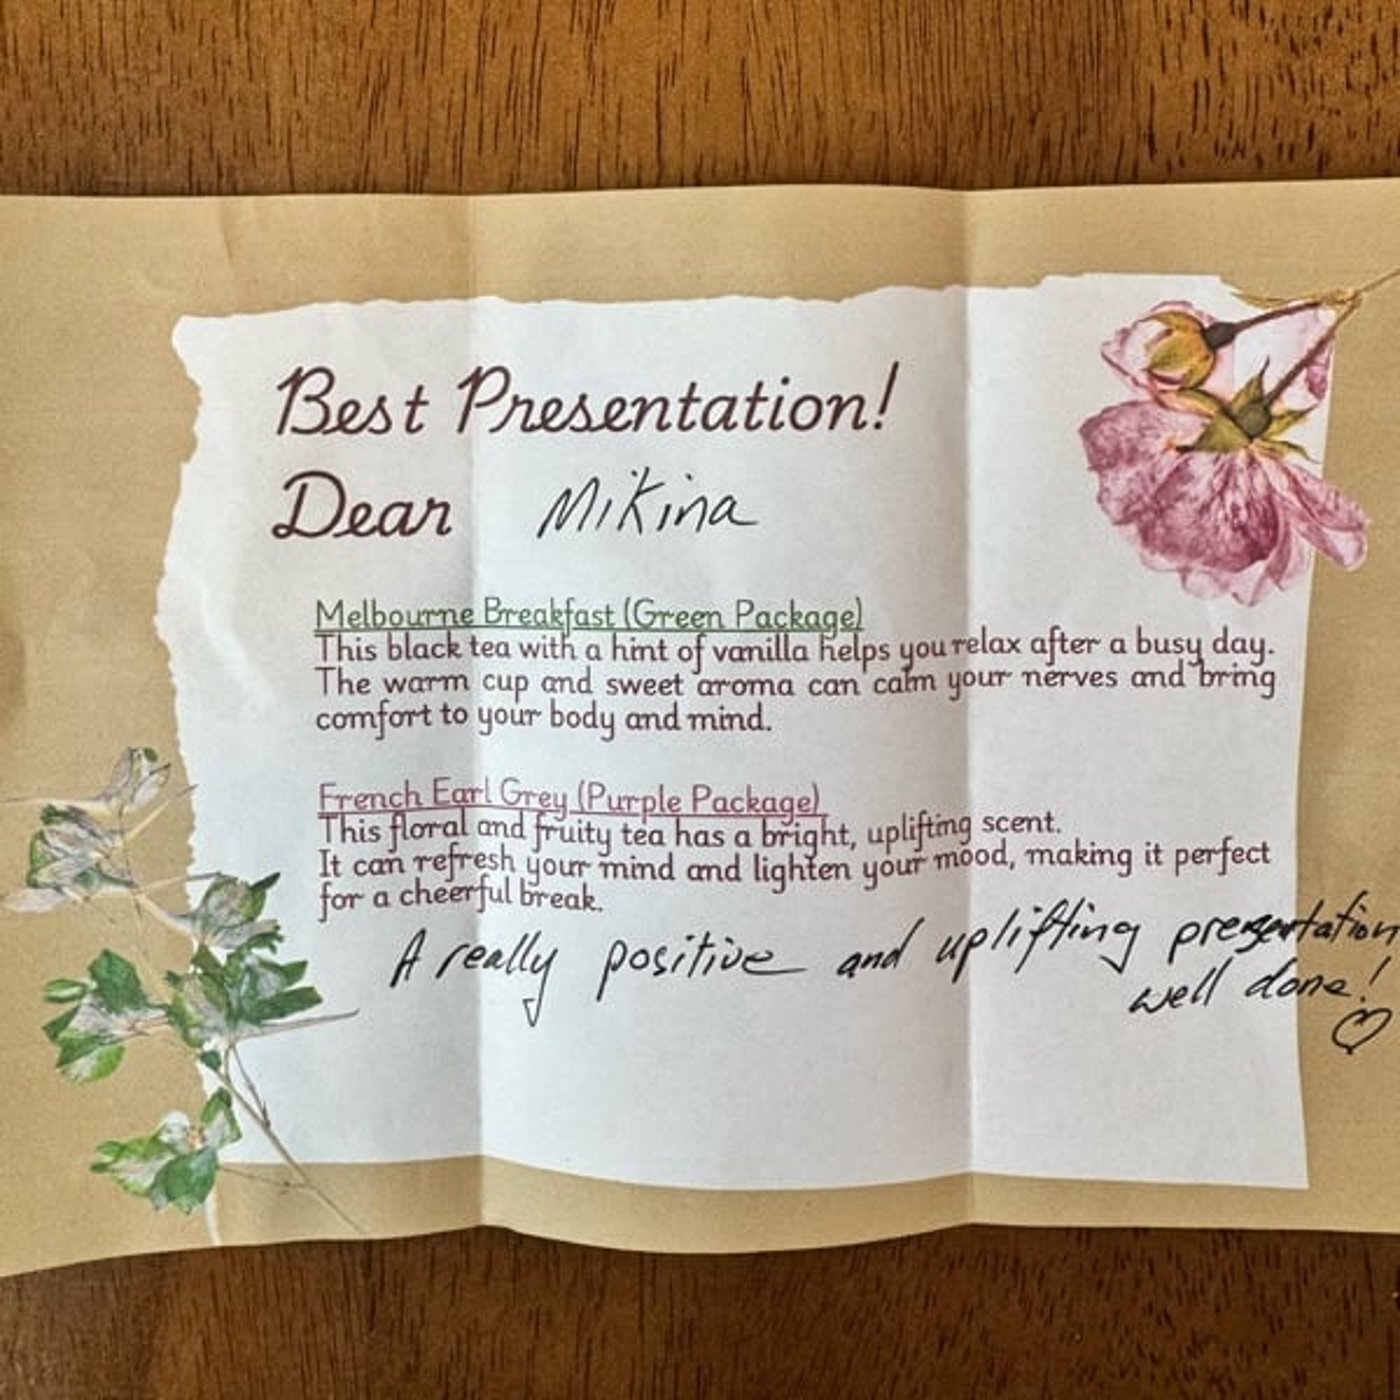 Best Presentation!
Dear Mikina
Melbourne Breakfast (Green Package)
This black tea with a hint of vanilla helps you relax after a busy day.
The warm cup and sweet aroma can calm your nerves and bring
comfort to your body and mind.
French Earl Grey (Purple Package)
This floral and fruity tea has a bright, uplifting scent.
It can refresh your mind and lighten your mood, making it perfect
for a cheerful break.
A really positive and uplifting presentation
well done!